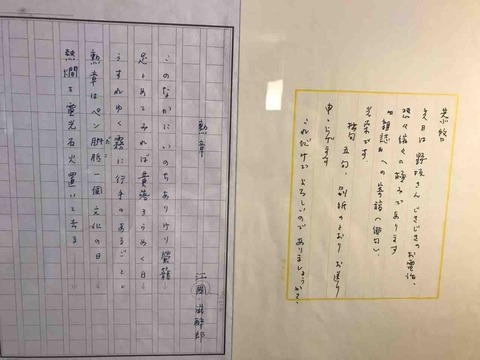 恭啓
先日は野坂さんじきじきのお電話、
恐々縮々の極みであります
「雑誌」への寄稿(俳句)、
光栄です
拙句五句、別紙のとおりお送り
申しあげます
これだけでよろしいのでありましょうか?
勲章
江國滋酔郎
このなかにいのちありけり螢籠
足とめてみれば黄落きらめく日
うすれゆく霧に行手のあるごとし
勲章はペン胼胝一個文化の日
熱燗を電光石火置いて去る